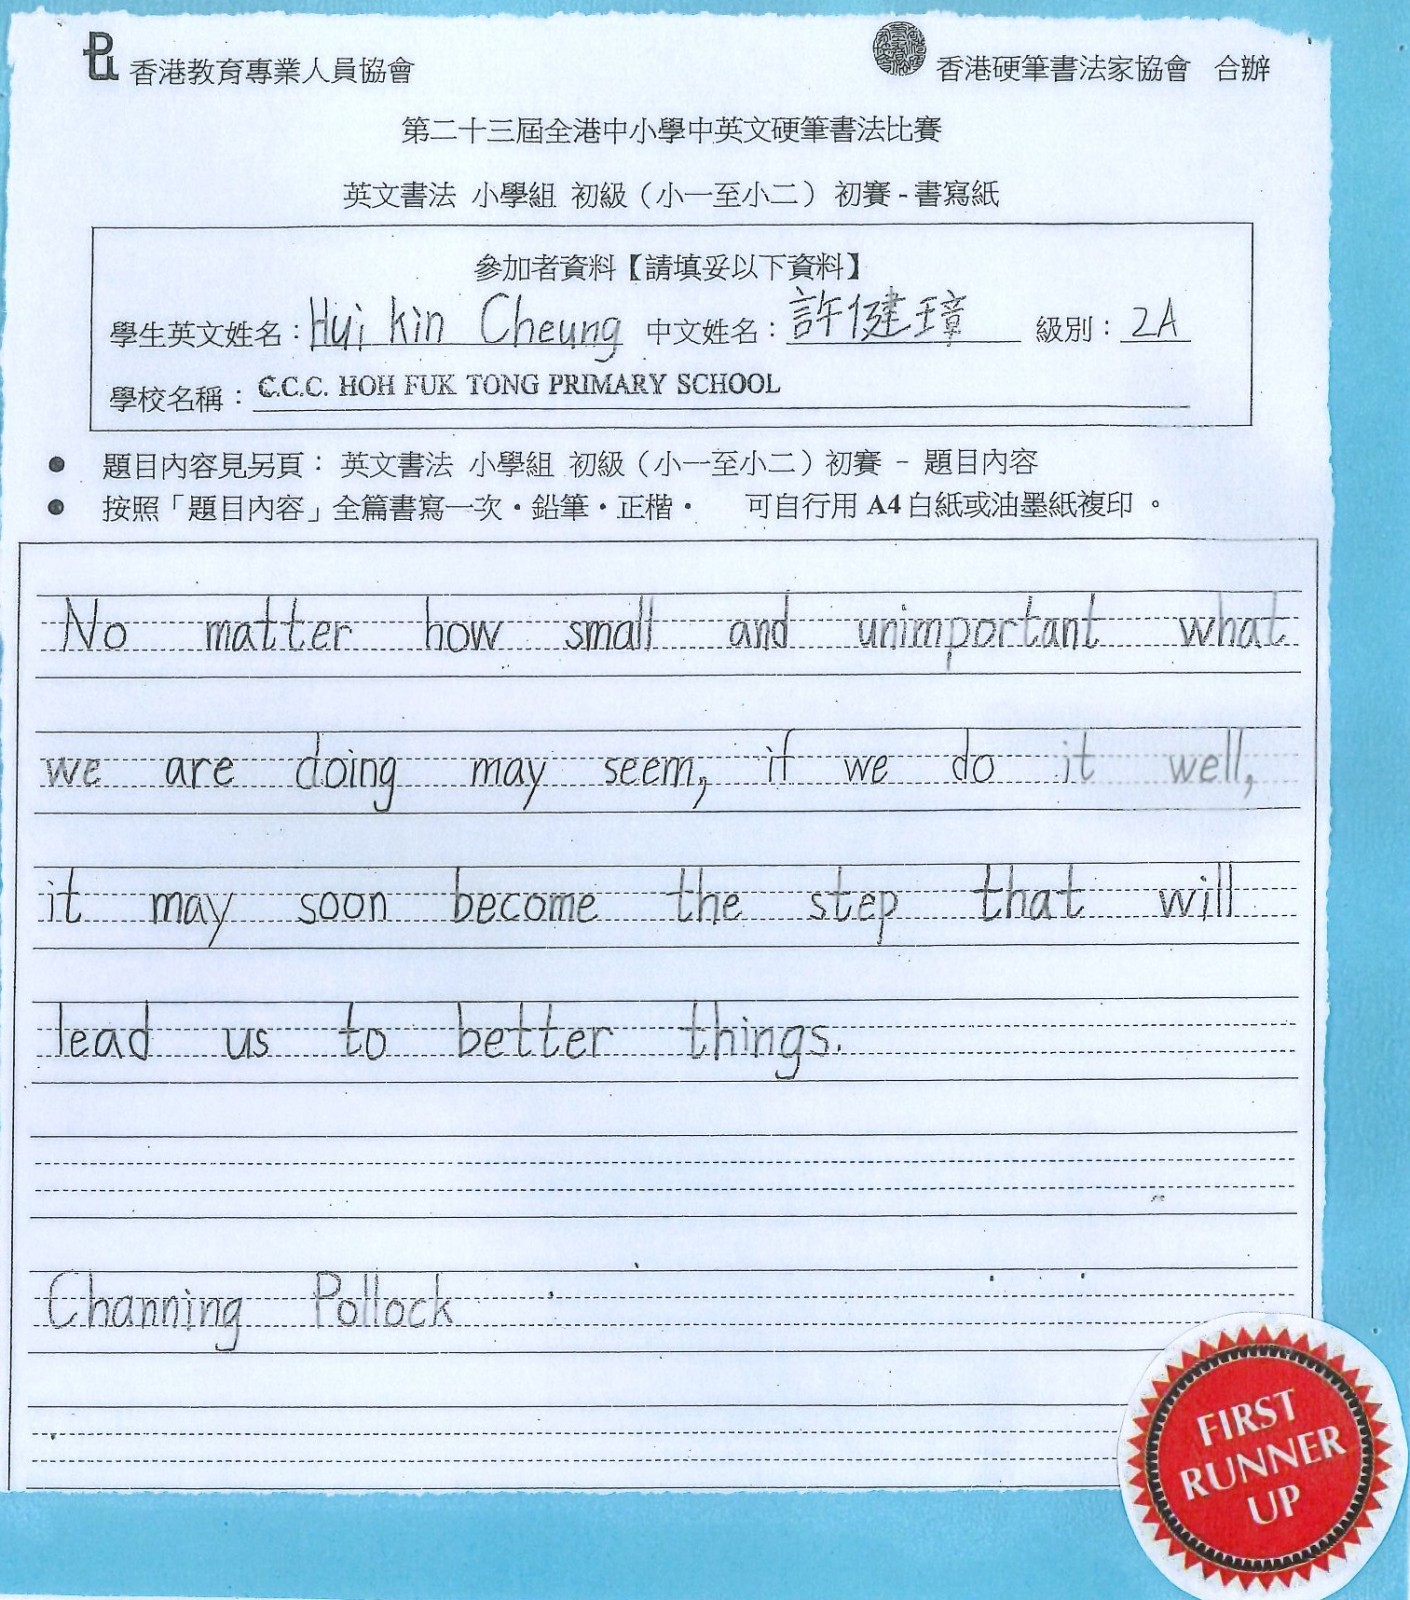 香港教育專業人員協會
香港硬筆書法家協會 合辦
第二十三屆全港中小學中英文硬筆書法比賽
英文書法 小學組 初級（小一至小二）初賽 - 書寫紙
參加者資料【請填妥以下資料】
學生英文姓名：Hui Kin Cheung 中文姓名：許健璋 級別：2A
學校名稱：C.C.C. HOH FUK TONG PRIMARY SCHOOL
● 題目內容見另頁：英文書法 小學組 初級（小一至小二）初賽 - 題目內容
● 按照「題目內容」全篇書寫一次‧鉛筆‧正楷‧ 可自行用 A4 白紙或油墨紙複印。
No matter how small and unimportant what
we are doing may seem, if we do it well,
it may soon become the step that will
lead us to better things.
Channing Pollock
FIRST
RUNNER
UP